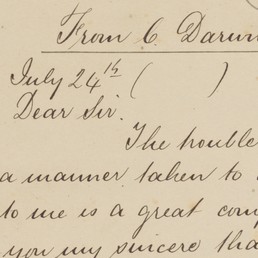 From C. Darwin
July 24th (      )
Dear Sir.
The trouble
a manner taken to
to me is a great com
you my sincere tha